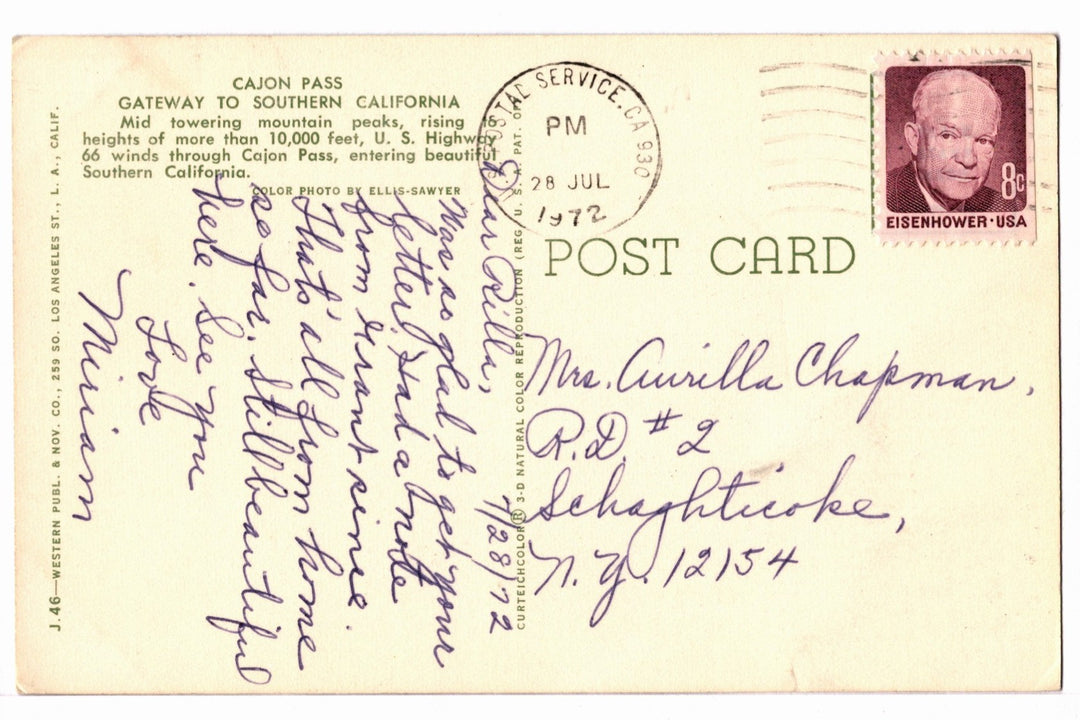 CAJON PASS
GATEWAY TO SOUTHERN CALIFORNIA
Mid towering mountain peaks, rising
heights of more than 10,000 feet, U. S. Highway
66 winds through Cajon Pass, entering beautiful
Southern California.
COLOR PHOTO BY ELLIS-SAWYER
J.46—WESTERN PUBL. & NOV. CO., 259 SO. LOS ANGELES ST., L. A., CALIF.
7/28/72
Dear Rilla,
Was so glad to get your
letter. Had a note
from Grant since.
That's all from home
so far. Still beautiful
here. See you
Love
Miriam
CURTEICHCOLOR® 3-D NATURAL COLOR REPRODUCTION (REG. U. S. A. PAT. OFF
POSTAL SERVICE, CA 930
PM
28 JUL
1972
8c
EISENHOWER·USA
POST CARD
Mrs. Aurilla Chapman,
R.D. #2
Schaghticoke,
N.Y. 12154